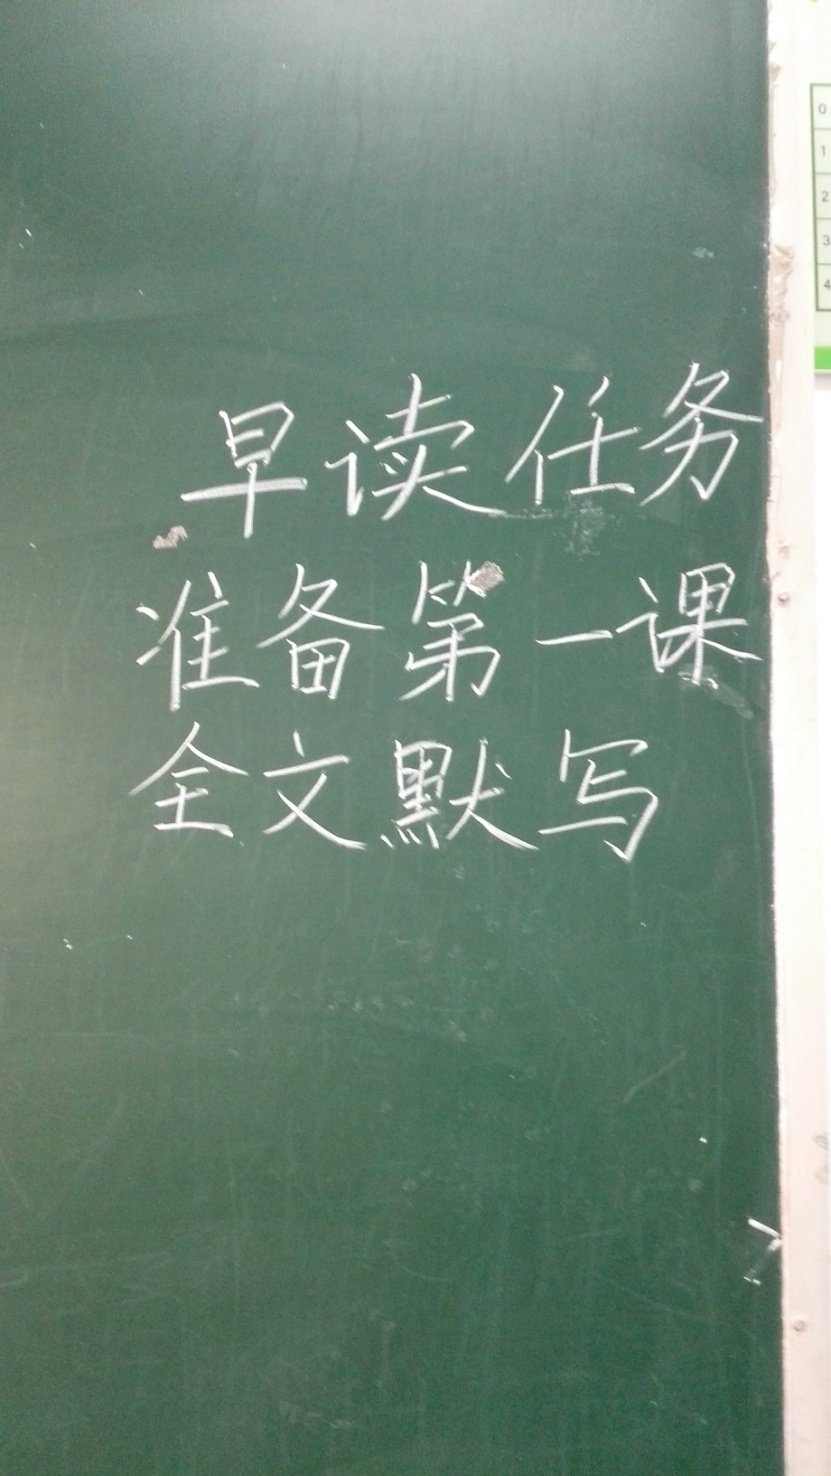 早读任务
准备第一课
全文默写
0
1
2
3
4